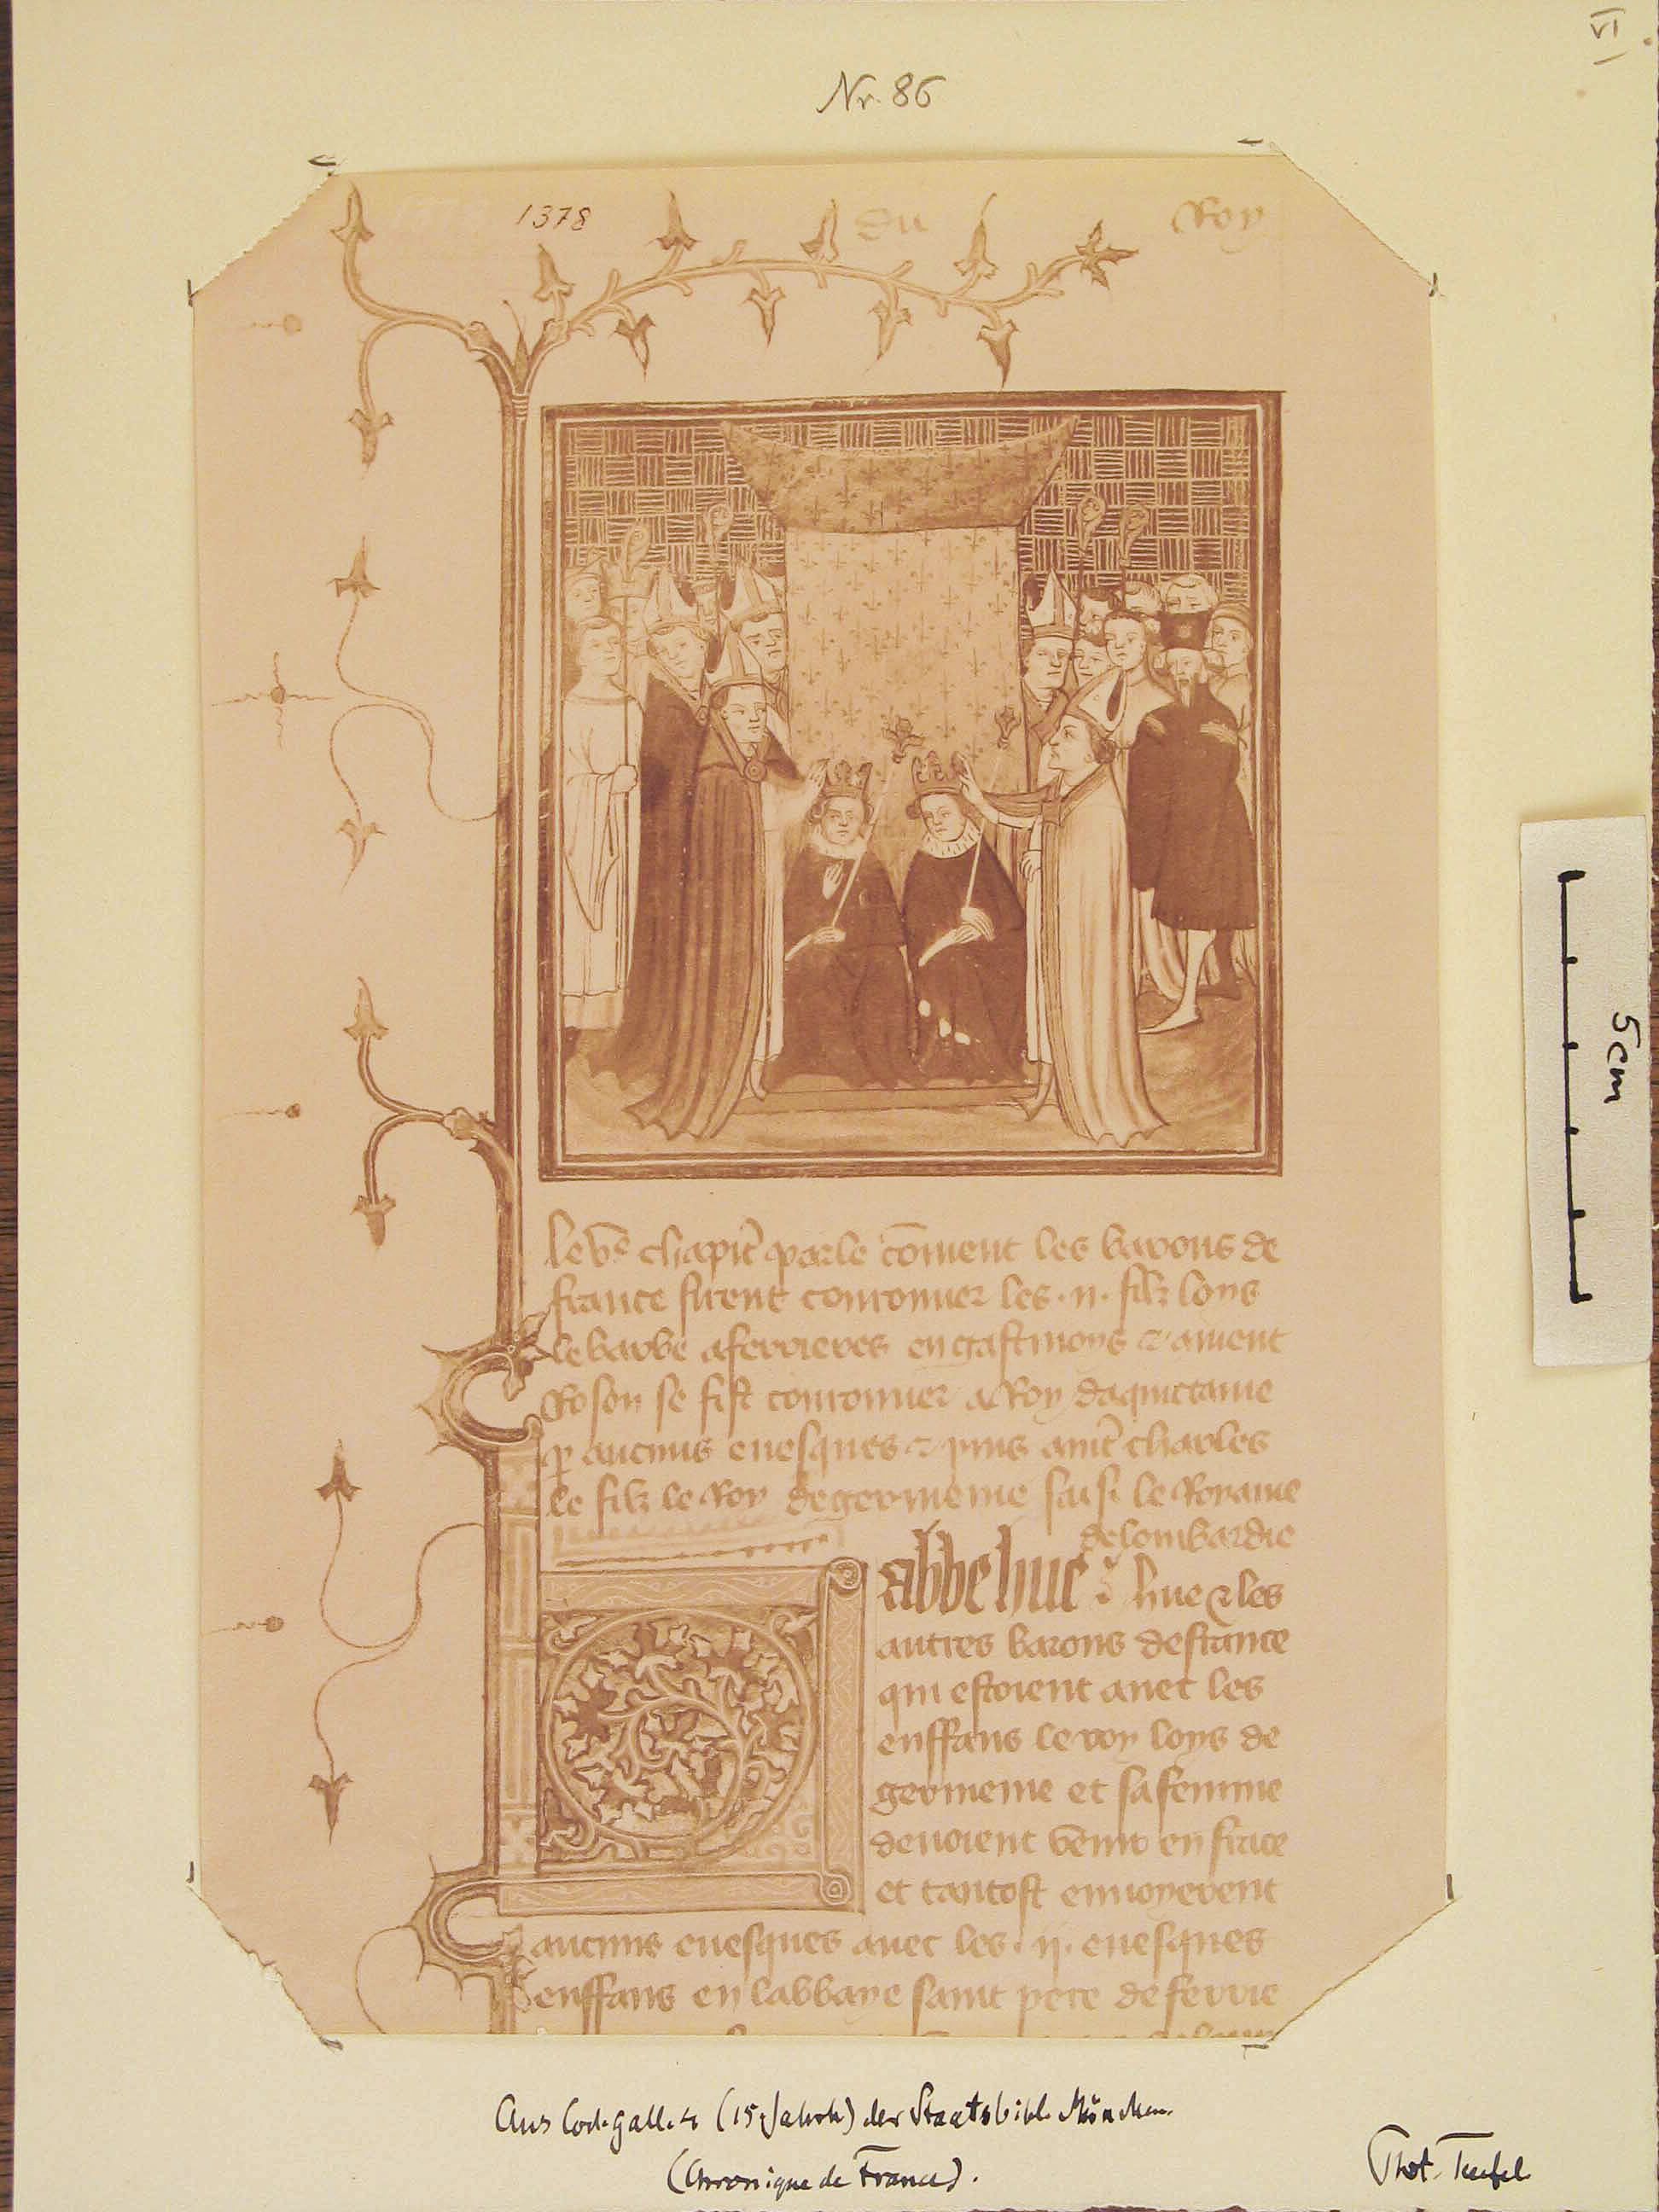 VI
Nr. 86
1378 du Roy
le ve chapitre parle cōment les barons de
france firent couronner les .ii. filz loys
le baube a ferrieres en gastinoys & cōment
Boson se fist couronner a Roy daquictaine
p aucuns euesques & puis cōment charles
le filz le Roy de germenie saisi le Royaume
de lombardie
abbe hue & les
autres barons de france
qui estoient auec les
enffans le roy loys de
germenie et sa femme
deuoient venir en france
et tantost enuoyerent
aucuns euesques auec les .ii. euesques
enffans en labbaye saint pere de ferrie
5cm
Aus Cod. gall. 4 (15. Jahrh) der Staatsbibl. München.
(Chronique de France).
Phot. Teufel